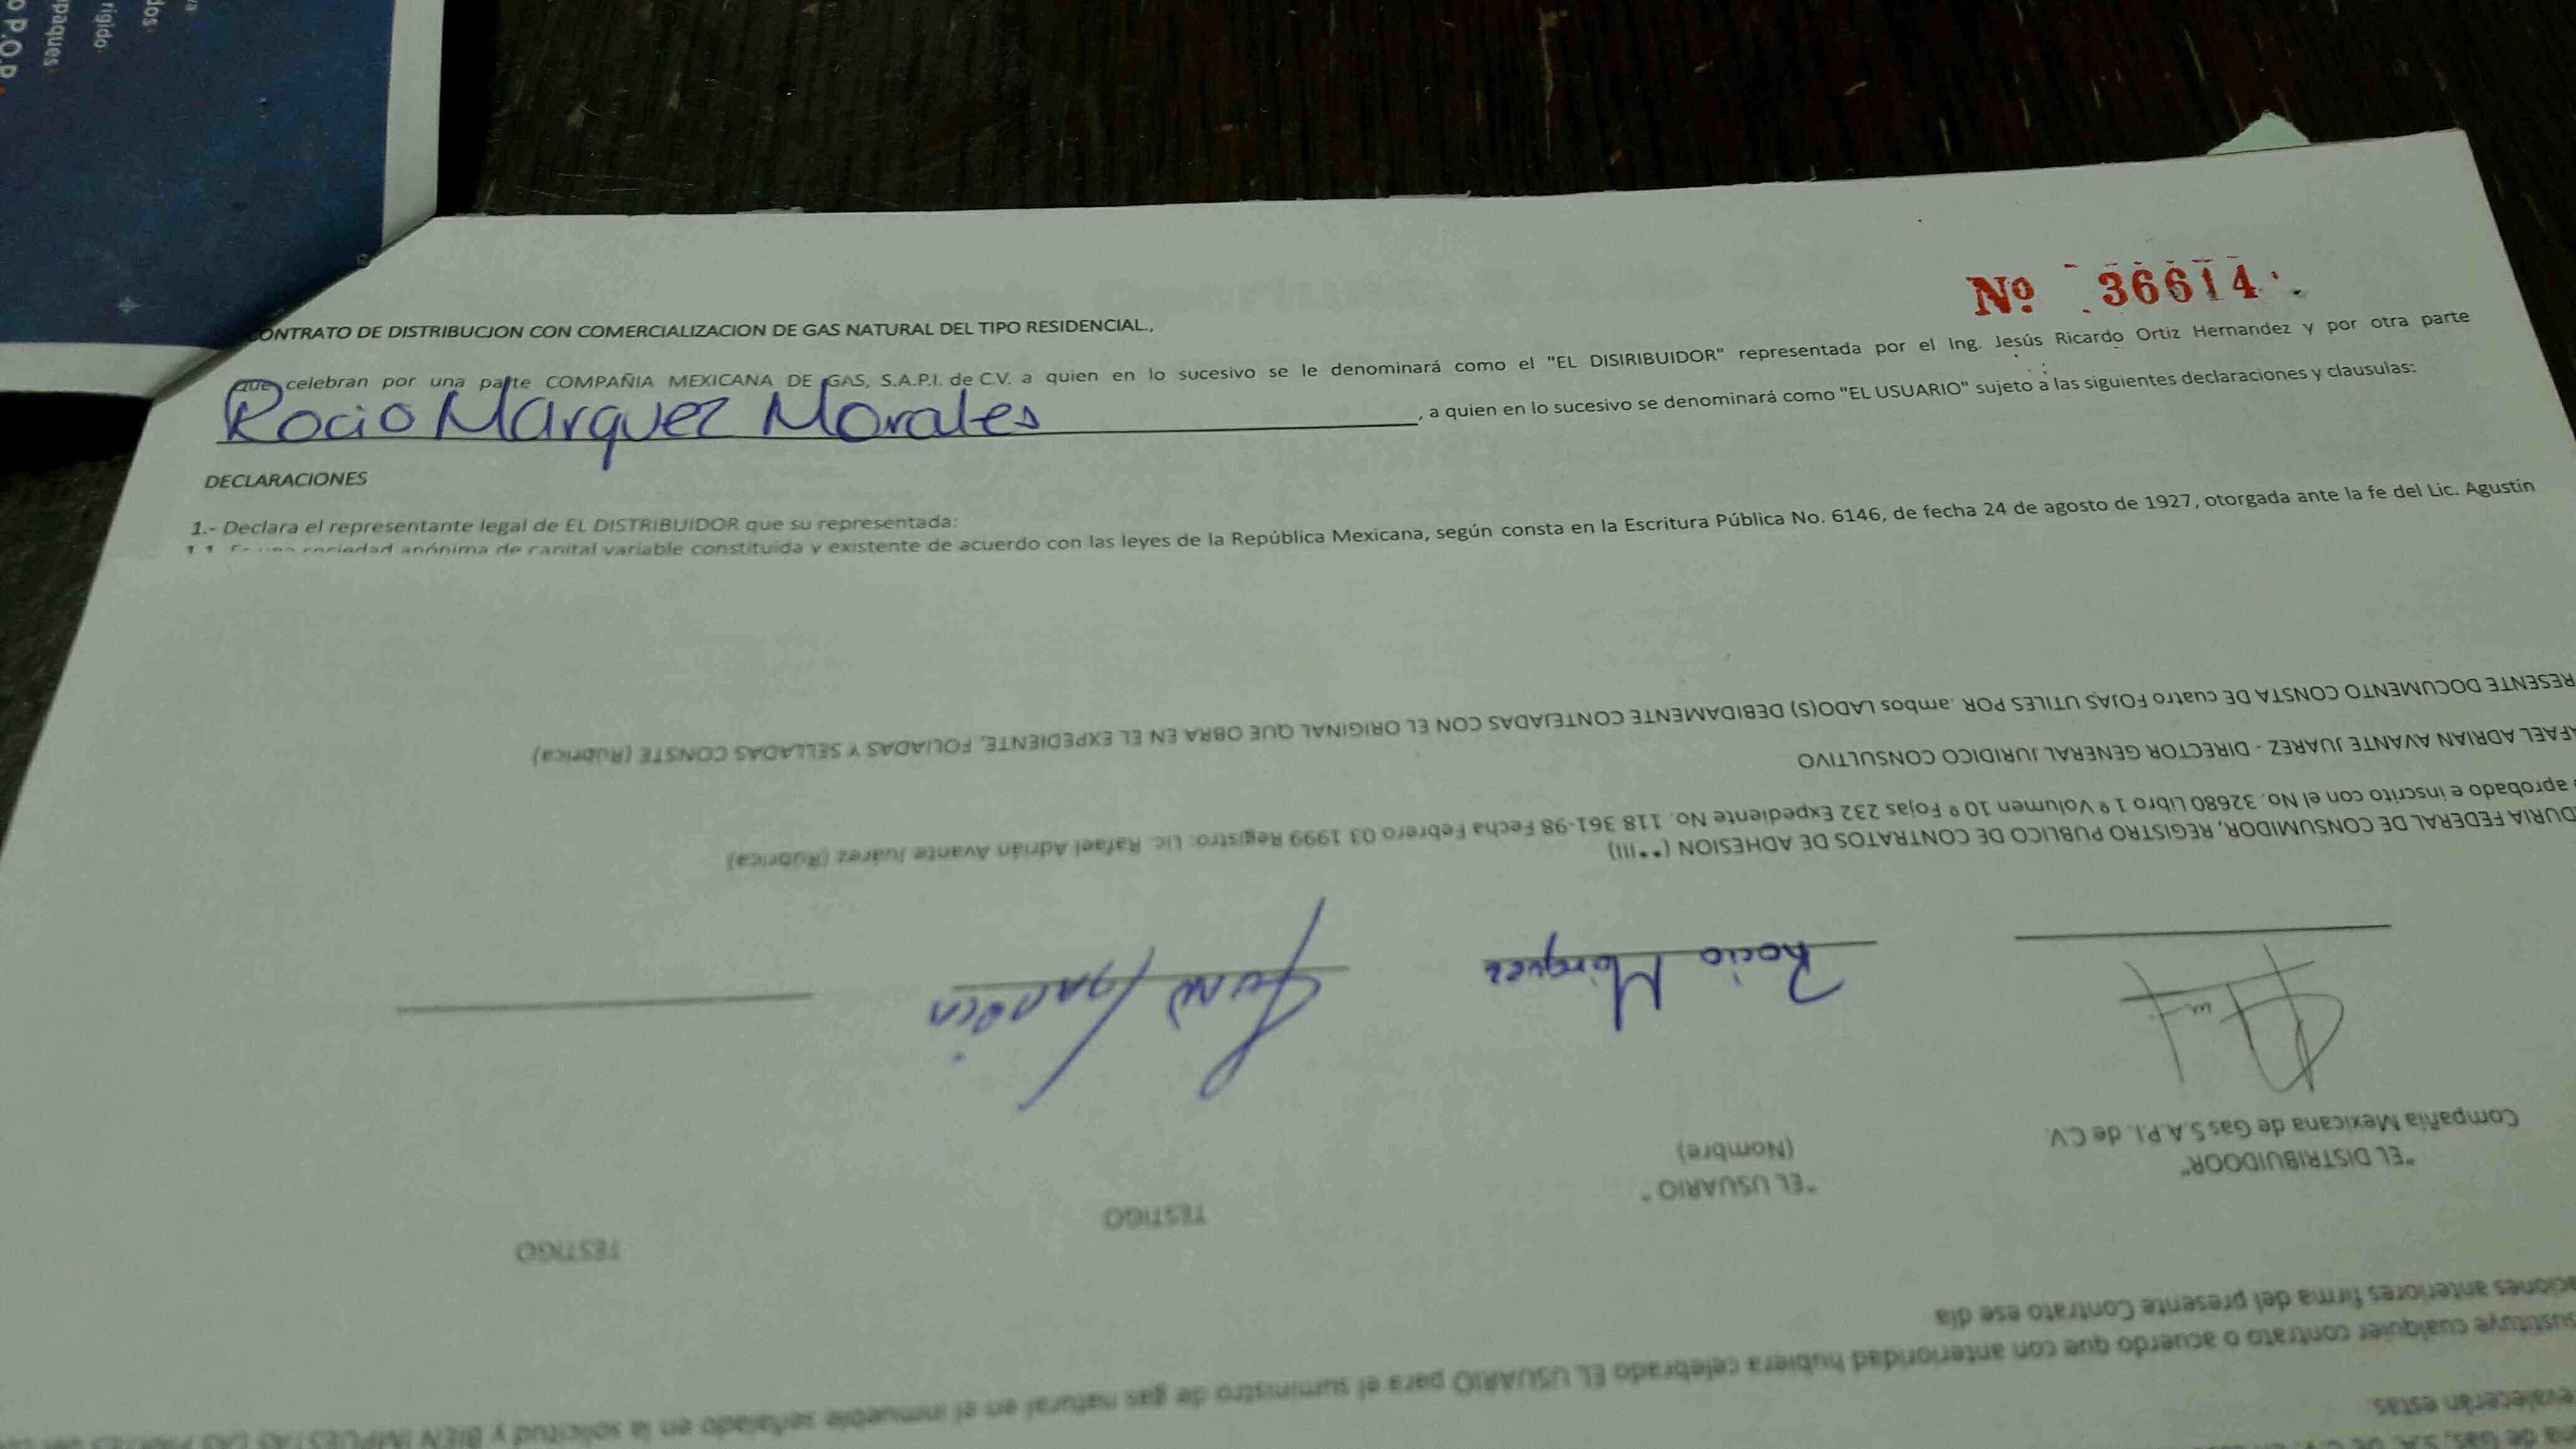 P.O.P.
paques
rigido
dos
Nº 36614
CONTRATO DE DISTRIBUCION CON COMERCIALIZACION DE GAS NATURAL DEL TIPO RESIDENCIAL.,
que celebran por una parte COMPAÑIA MEXICANA DE GAS, S.A.P.I. de C.V. a quien en lo sucesivo se le denominará como el "EL DISIRIBUIDOR" representada por el Ing. Jesús Ricardo Ortiz Hernandez y por otra parte
Rocio Marquez Morales, a quien en lo sucesivo se denominará como "EL USUARIO" sujeto a las siguientes declaraciones y clausulas:
DECLARACIONES
1.- Declara el representante legal de EL DISTRIBUIDOR que su representada:
1.1. Es una sociedad anónima de capital variable constituida y existente de acuerdo con las leyes de la República Mexicana, según consta en la Escritura Pública No. 6146, de fecha 24 de agosto de 1927, otorgada ante la fe del Lic. Agustín
evalecerán estas.
sustituye cualquier contrato o acuerdo que con anterioridad hubiera celebrado EL USUARIO para el suministro de gas natural en el inmueble señalado en la solicitud y BIEN IMPUESTAS LAS PARTES
aciones anteriores firma del presente Contrato ese día
"EL DISTRIBUIDOR"
Compañía Mexicana de Gas S.A.P.I. de C.V.
"EL USUARIO"
(Nombre)
TESTIGO
TESTIGO
Rocio Márquez
DURIA FEDERAL DE CONSUMIDOR, REGISTRO PUBLICO DE CONTRATOS DE ADHESION (**III)
aprobado e inscrito con el No. 32680 Libro 1º Volumen 10º Fojas 232 Expediente No. 118 361-98 Fecha Febrero 03 1999 Registro: Lic. Rafael Adrián Avante Juárez (Rúbrica)
AFAEL ADRIAN AVANTE JUAREZ - DIRECTOR GENERAL JURIDICO CONSULTIVO
RESENTE DOCUMENTO CONSTA DE cuatro FOJAS UTILES POR .ambos LADO(S) DEBIDAMENTE CONTEJADAS CON EL ORIGINAL QUE OBRA EN EL EXPEDIENTE, FOLIADAS Y SELLADAS CONSTE (Rúbrica)